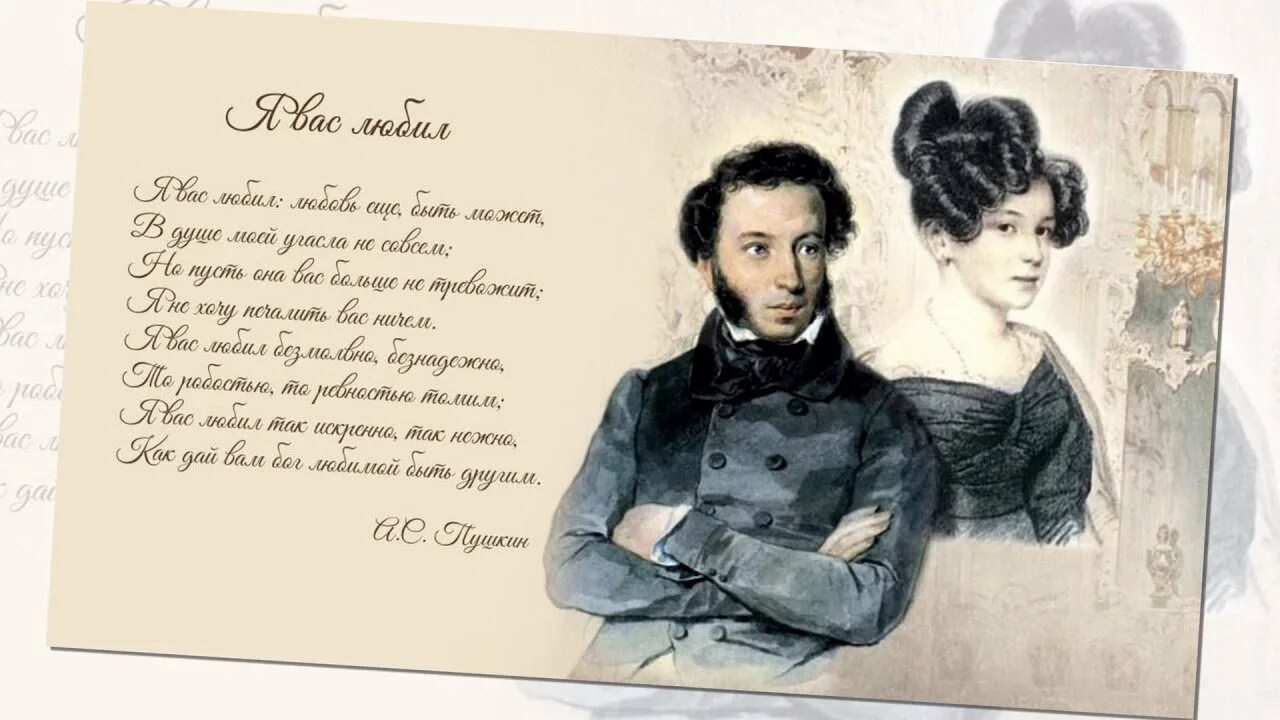 Я вас любил
Я вас любил: любовь еще, быть может,
В душе моей угасла не совсем;
Но пусть она вас больше не тревожит;
Я не хочу печалить вас ничем.
Я вас любил безмолвно, безнадежно,
То робостью, то ревностью томим;
Я вас любил так искренно, так нежно,
Как дай вам бог любимой быть другим.
А.С. Пушкин